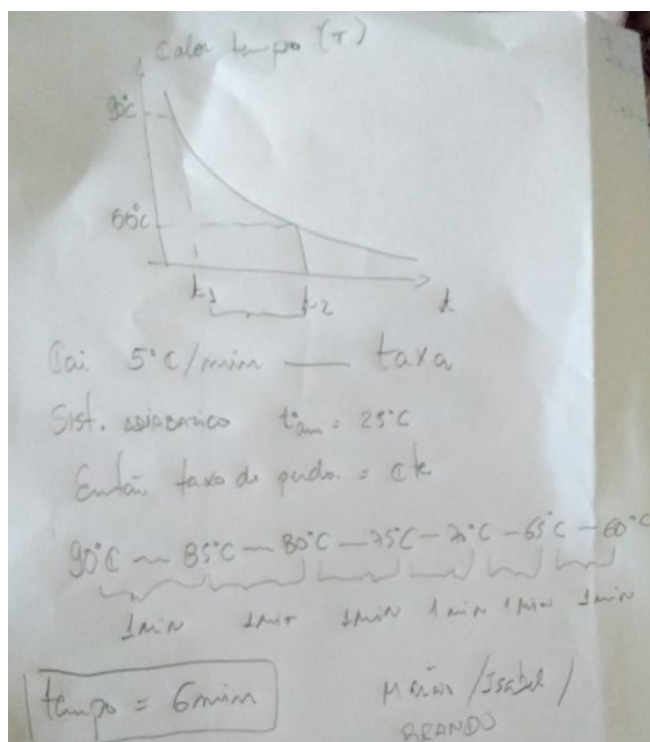 Calor tempo (T)
90°C
60°C
t1
t2
t
Cai 5°C/min — taxa
Sist. ADIABÁTICO t°am = 25°C
Então taxa de perda = cte
90°C — 85°C — 80°C — 75°C — 70°C — 65°C — 60°C
1min 1min 1min 1min 1min 1min
tempo = 6min
/Isabel/
BRANDO